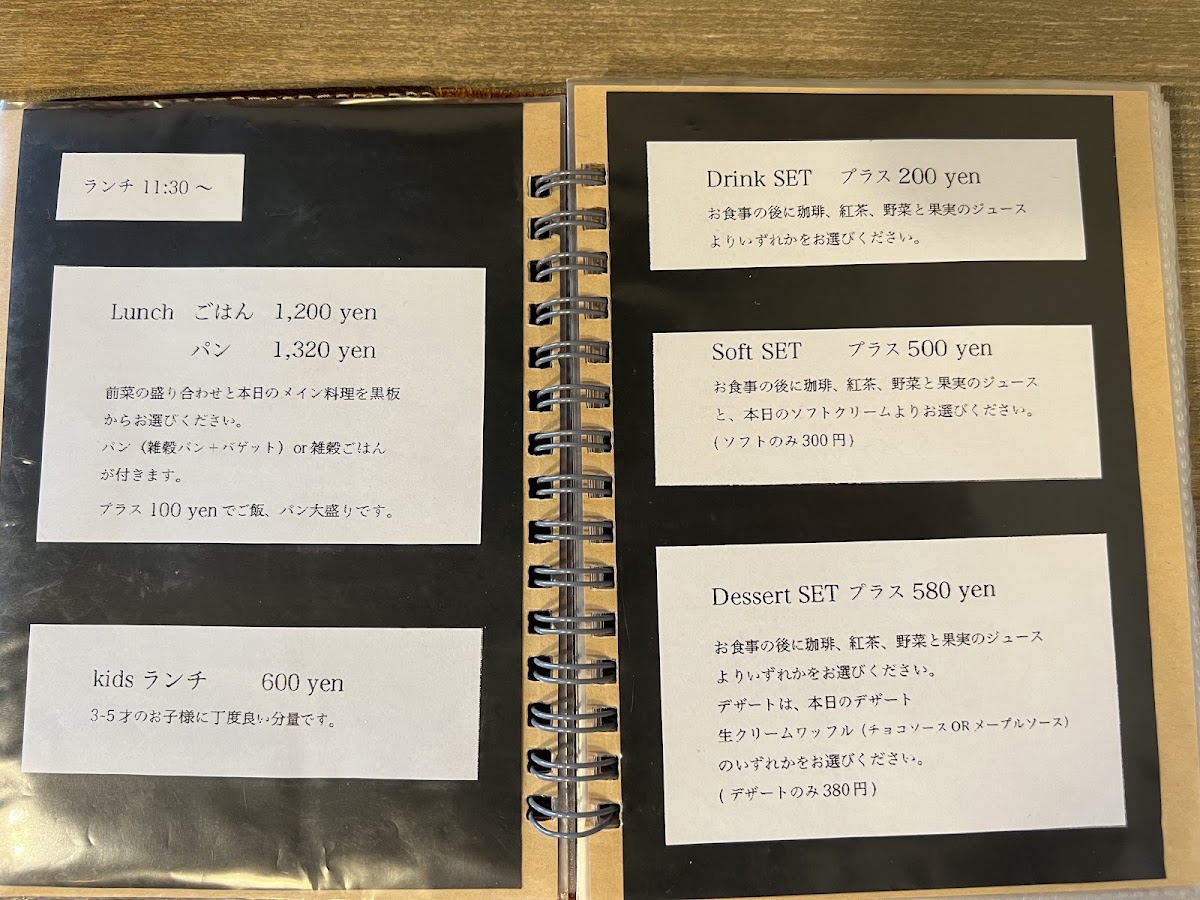 ランチ 11:30 ～
Lunch ごはん 1,200 yen
パン 1,320 yen
前菜の盛り合わせと本日のメイン料理を黒板
からお選びください。
パン（雑穀パン＋バゲット）or 雑穀ごはん
が付きます。
プラス 100 yen でご飯、パン大盛りです。
kids ランチ 600 yen
3-5 才のお子様に丁度良い分量です。
Drink SET プラス 200 yen
お食事の後に珈琲、紅茶、野菜と果実のジュース
よりいずれかをお選びください。
Soft SET プラス 500 yen
お食事の後に珈琲、紅茶、野菜と果実のジュース
と、本日のソフトクリームよりお選びください。
( ソフトのみ 300 円 )
Dessert SET プラス 580 yen
お食事の後に珈琲、紅茶、野菜と果実のジュース
よりいずれかをお選びください。
デザートは、本日のデザート
生クリームワッフル（チョコソース OR メープルソース）
のいずれかをお選びください。
( デザートのみ 380 円 )